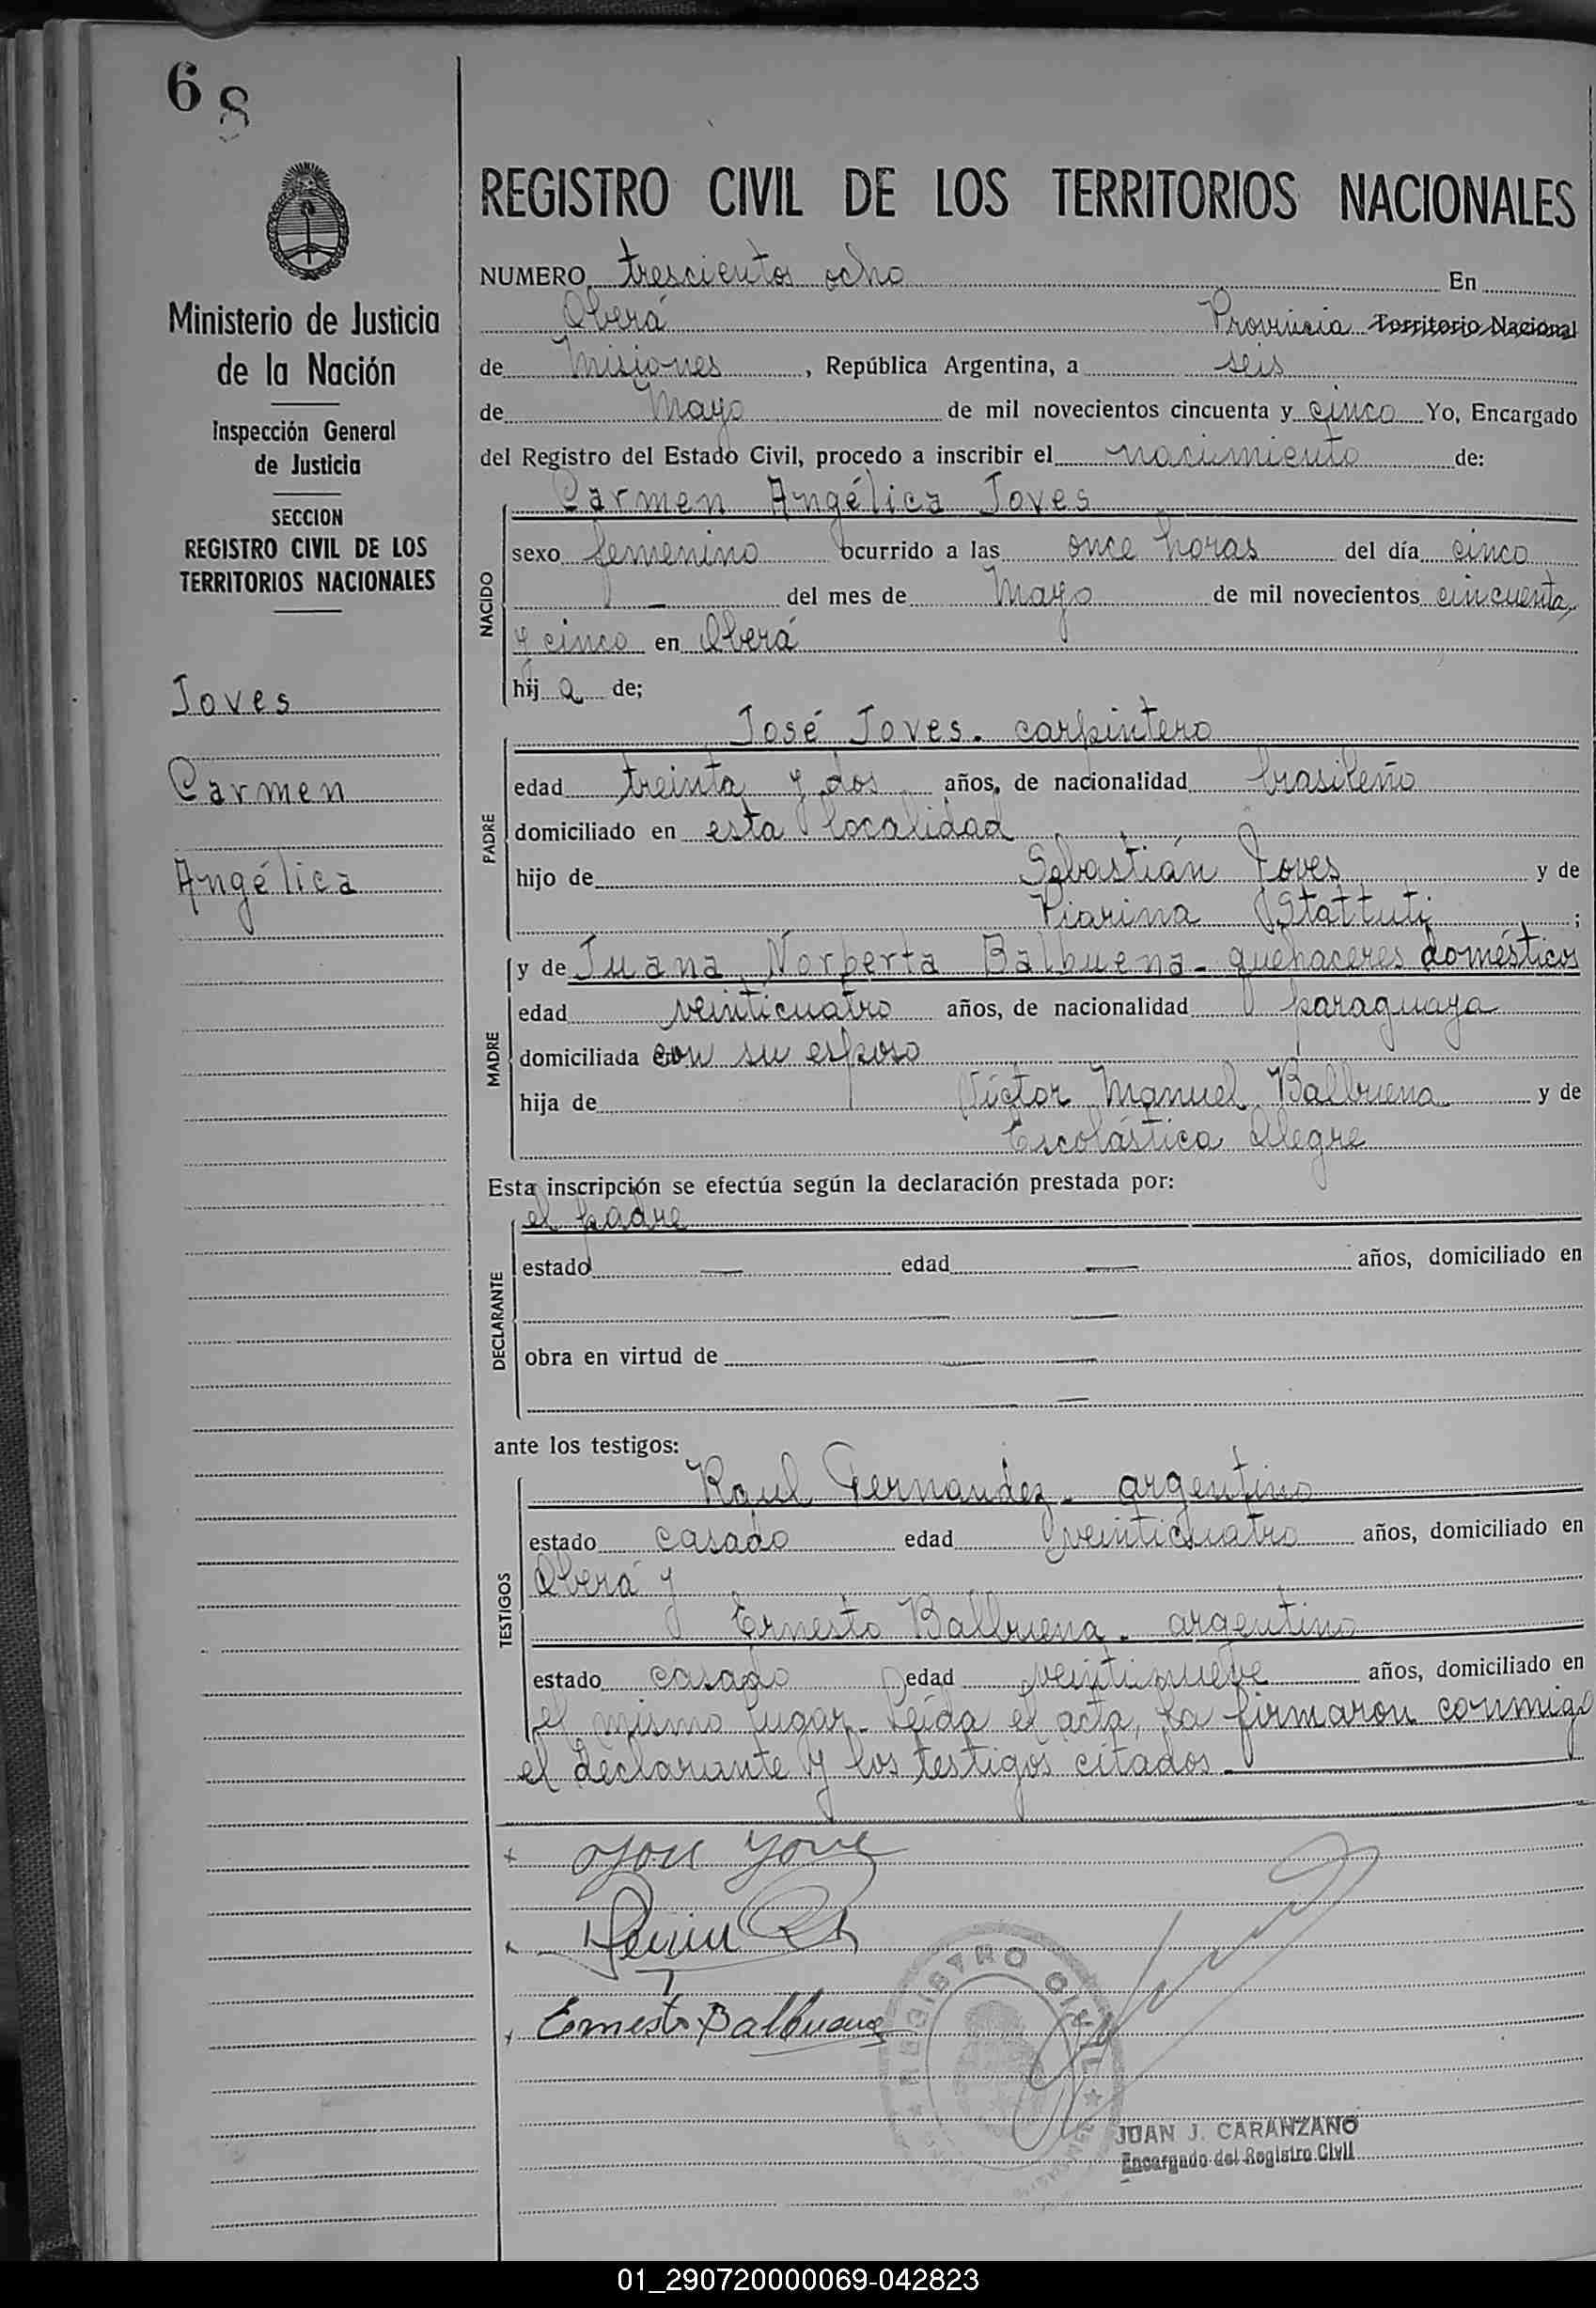 68
Ministerio de Justicia
de la Nación
Inspección General
de Justicia
SECCION
REGISTRO CIVIL DE LOS
TERRITORIOS NACIONALES
Joves
Carmen
Angélica
REGISTRO CIVIL DE LOS TERRITORIOS NACIONALES
NUMERO trescientos ocho En
Oberá Provincia Territorio Nacional
de Misiones, República Argentina, a seis
de Mayo de mil novecientos cincuenta y cinco Yo, Encargado
del Registro del Estado Civil, procedo a inscribir el nacimiento de:
Carmen Angélica Joves
NACIDO
sexo femenino ocurrido a las once horas del día cinco
— del mes de Mayo de mil novecientos cincuenta
y cinco en Oberá
hij a de;
José Joves. carpintero
PADRE
edad treinta y dos años, de nacionalidad brasileño
domiciliado en esta localidad
hijo de Sebastián Joves y de
Piarina Stattuti ;
y de Juana Norberta Balbuena - quehaceres domésticos
MADRE
edad veinticuatro años, de nacionalidad paraguaya
domiciliada con su esposo
hija de Víctor Manuel Balbuena y de
Escolástica Alegre
Esta inscripción se efectúa según la declaración prestada por:
el padre
DECLARANTE
estado — edad — años, domiciliado en
— —
obra en virtud de — —
—
ante los testigos:
Raul Fernandez - argentino
TESTIGOS
estado casado edad veinticuatro años, domiciliado en
Oberá y
Ernesto Balbuena - argentino
estado casado edad veintinueve años, domiciliado en
el mismo lugar. Leída el acta, la firmaron conmigo
el declarante y los testigos citados
Ernesto Balbuena
REGISTRO CIVIL
JUAN J. CARANZANO
Encargado del Registro Civil
01_290720000069-042823